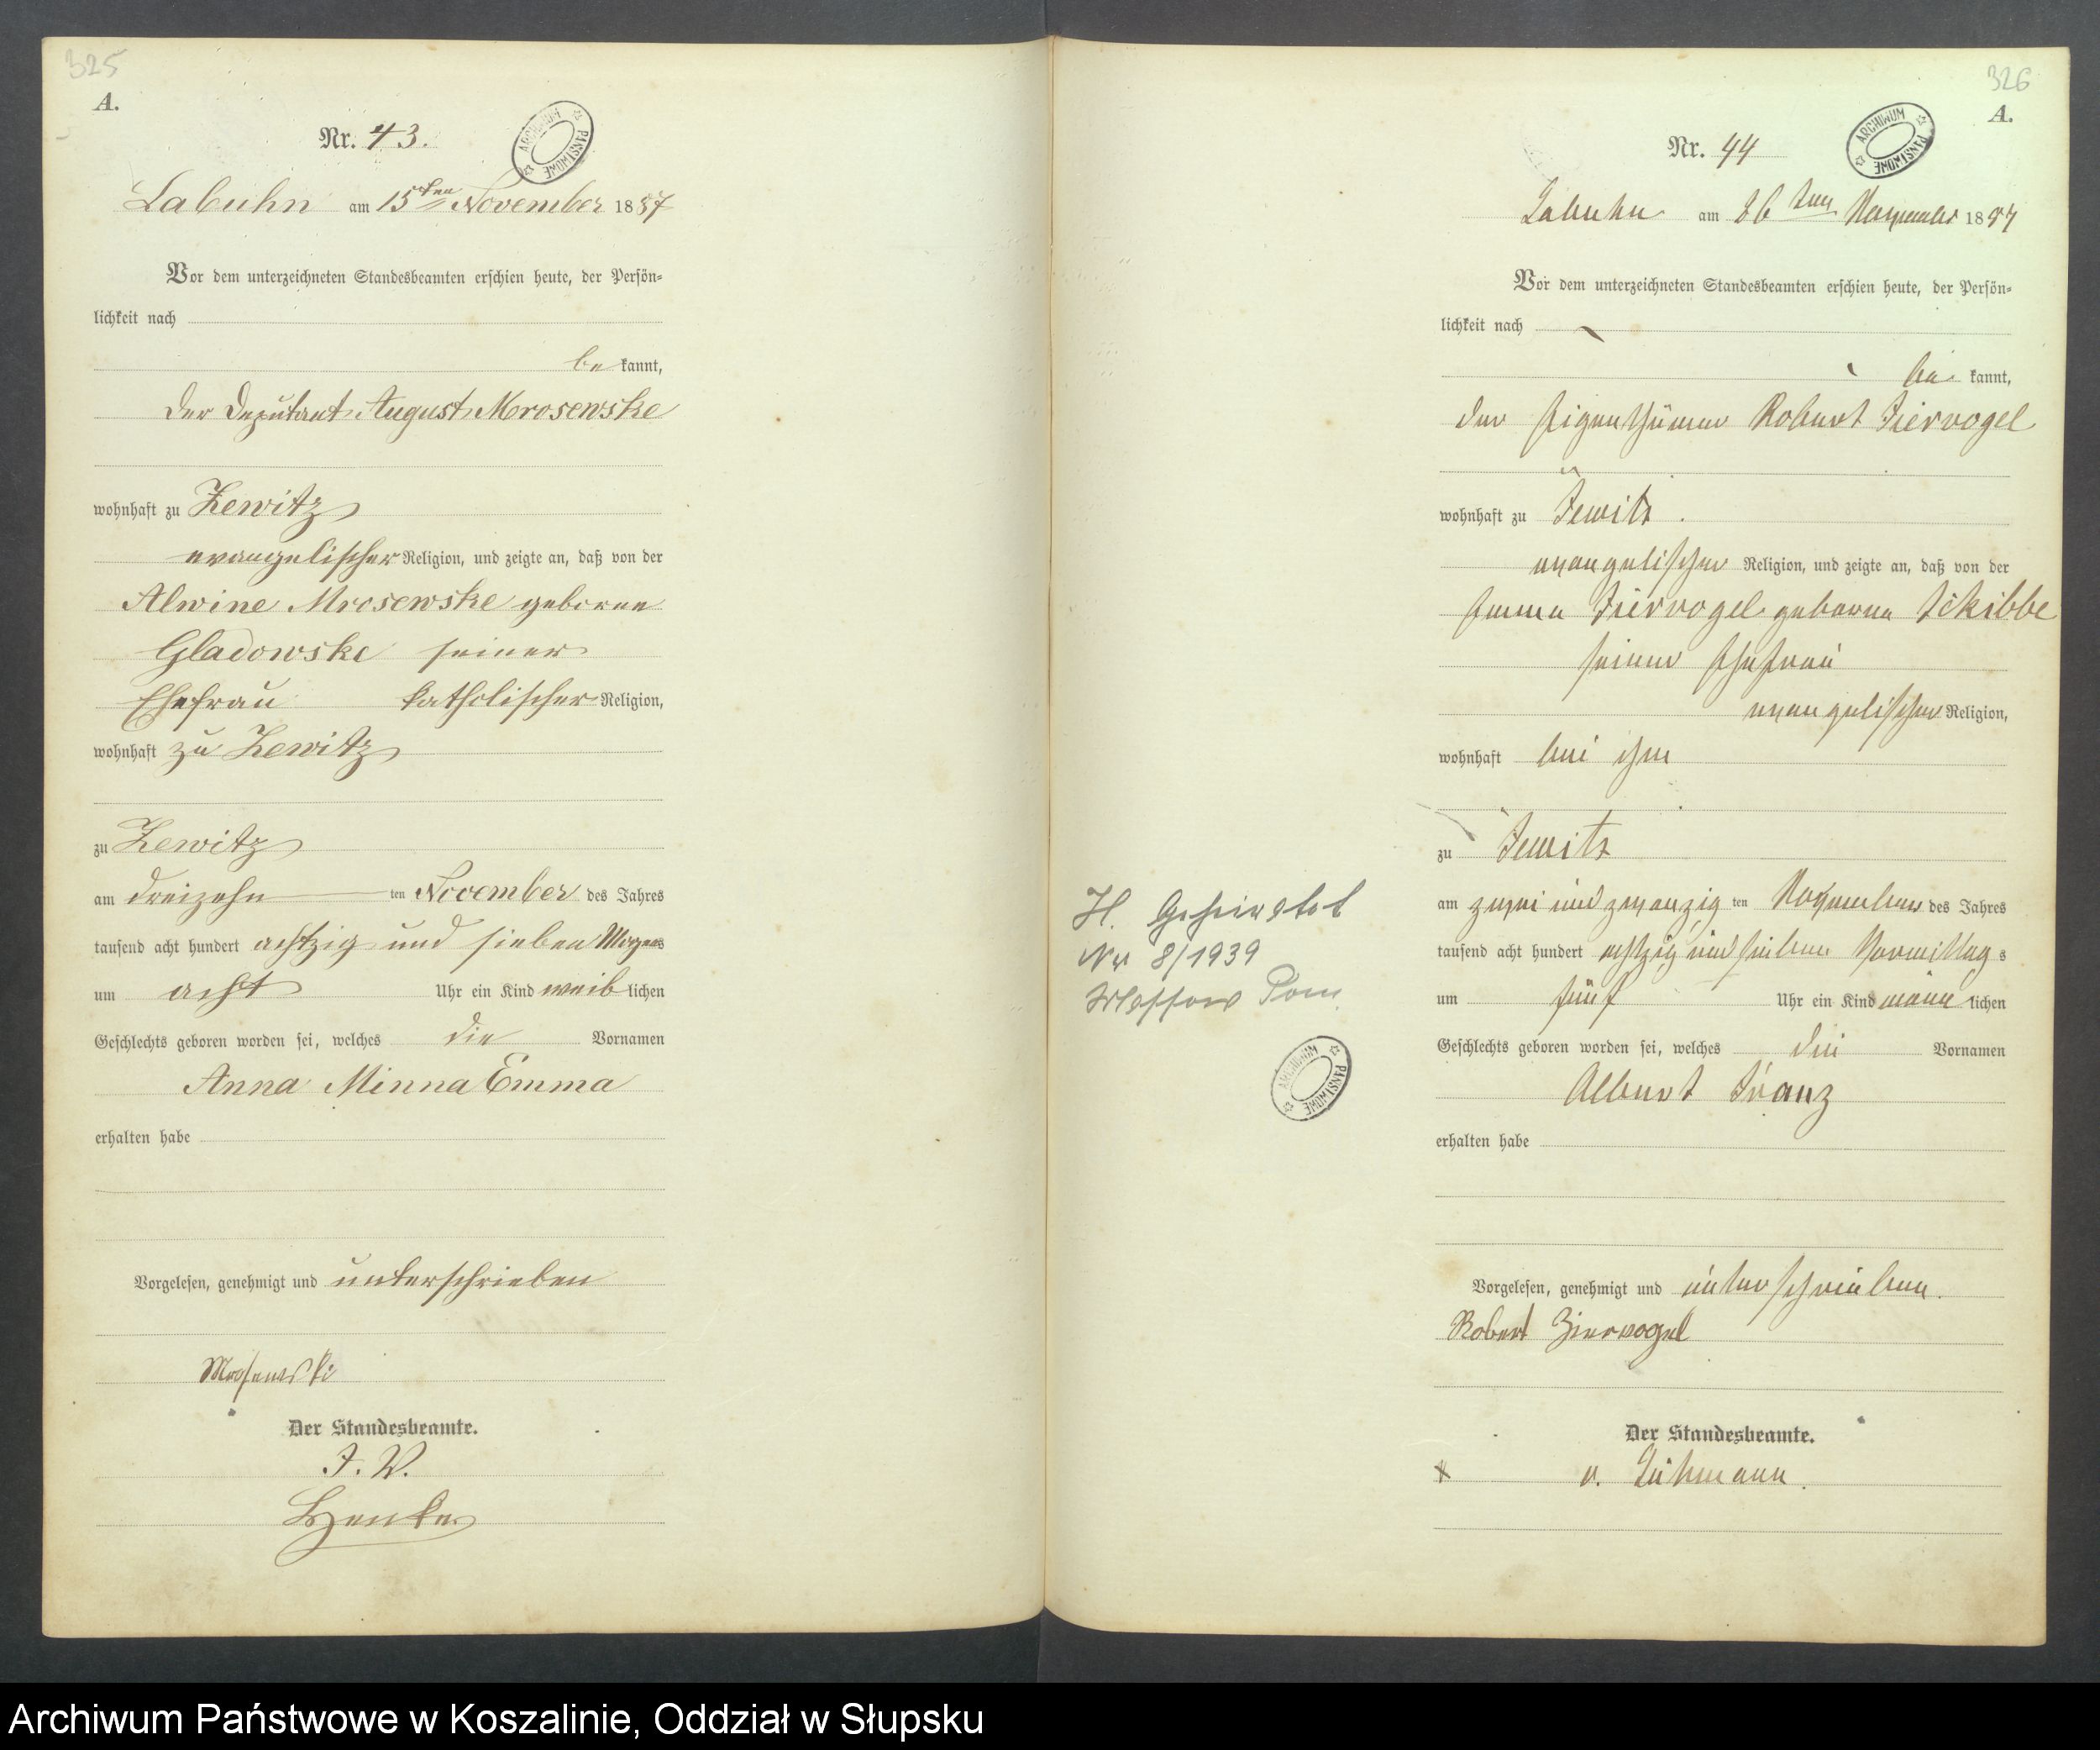 325
A.
Nr. 43.
ARCHIWUM PAŃSTWOWE
Labuhn am 15ten November 1887
Vor dem unterzeichneten Standesbeamten erschien heute, der Persön=
lichkeit nach
be kannt,
der Deputant August Mrosewske
wohnhaft zu Zewitz
evangelischer Religion, und zeigte an, daß von der
Alwine Mrosewske geborne
Gladowske seiner
Ehefrau katholischer Religion,
wohnhaft zu Zewitz
zu Zewitz
am dreizehn ten November des Jahres
tausend acht hundert achtzig und sieben Morgens
um acht Uhr ein Kind weib lichen
Geschlechts geboren worden sei, welches die Vornamen
Anna Minna Emma
erhalten habe
Vorgelesen, genehmigt und unterschrieben
Mrosewski
Der Standesbeamte.
J. V.
Henke
326
A.
Nr. 44
ARCHIWUM PAŃSTWOWE
Labuhn am 26ten November 1887
Vor dem unterzeichneten Standesbeamten erschien heute, der Persön=
lichkeit nach
be kannt,
der Eigenthümer Robert Ziervogel
wohnhaft zu Zewitz.
evangelischer Religion, und zeigte an, daß von der
Emma Ziervogel geborne Schibbe
seiner Ehefrau
evangelischer Religion,
wohnhaft bei ihm
zu Zewitz
am zwei und zwanzig ten November des Jahres
tausend acht hundert achtzig und sieben Vormittag s
um fünf Uhr ein Kind männ lichen
Geschlechts geboren worden sei, welches die Vornamen
Albert Franz
erhalten habe
H. Geheiratet
Nr 8/1939
Pom
ARCHIWUM PAŃSTWOWE
Vorgelesen, genehmigt und unterschrieben.
Robert Ziervogel
Der Standesbeamte.
v.
Archiwum Państwowe w Koszalinie, Oddział w Słupsku